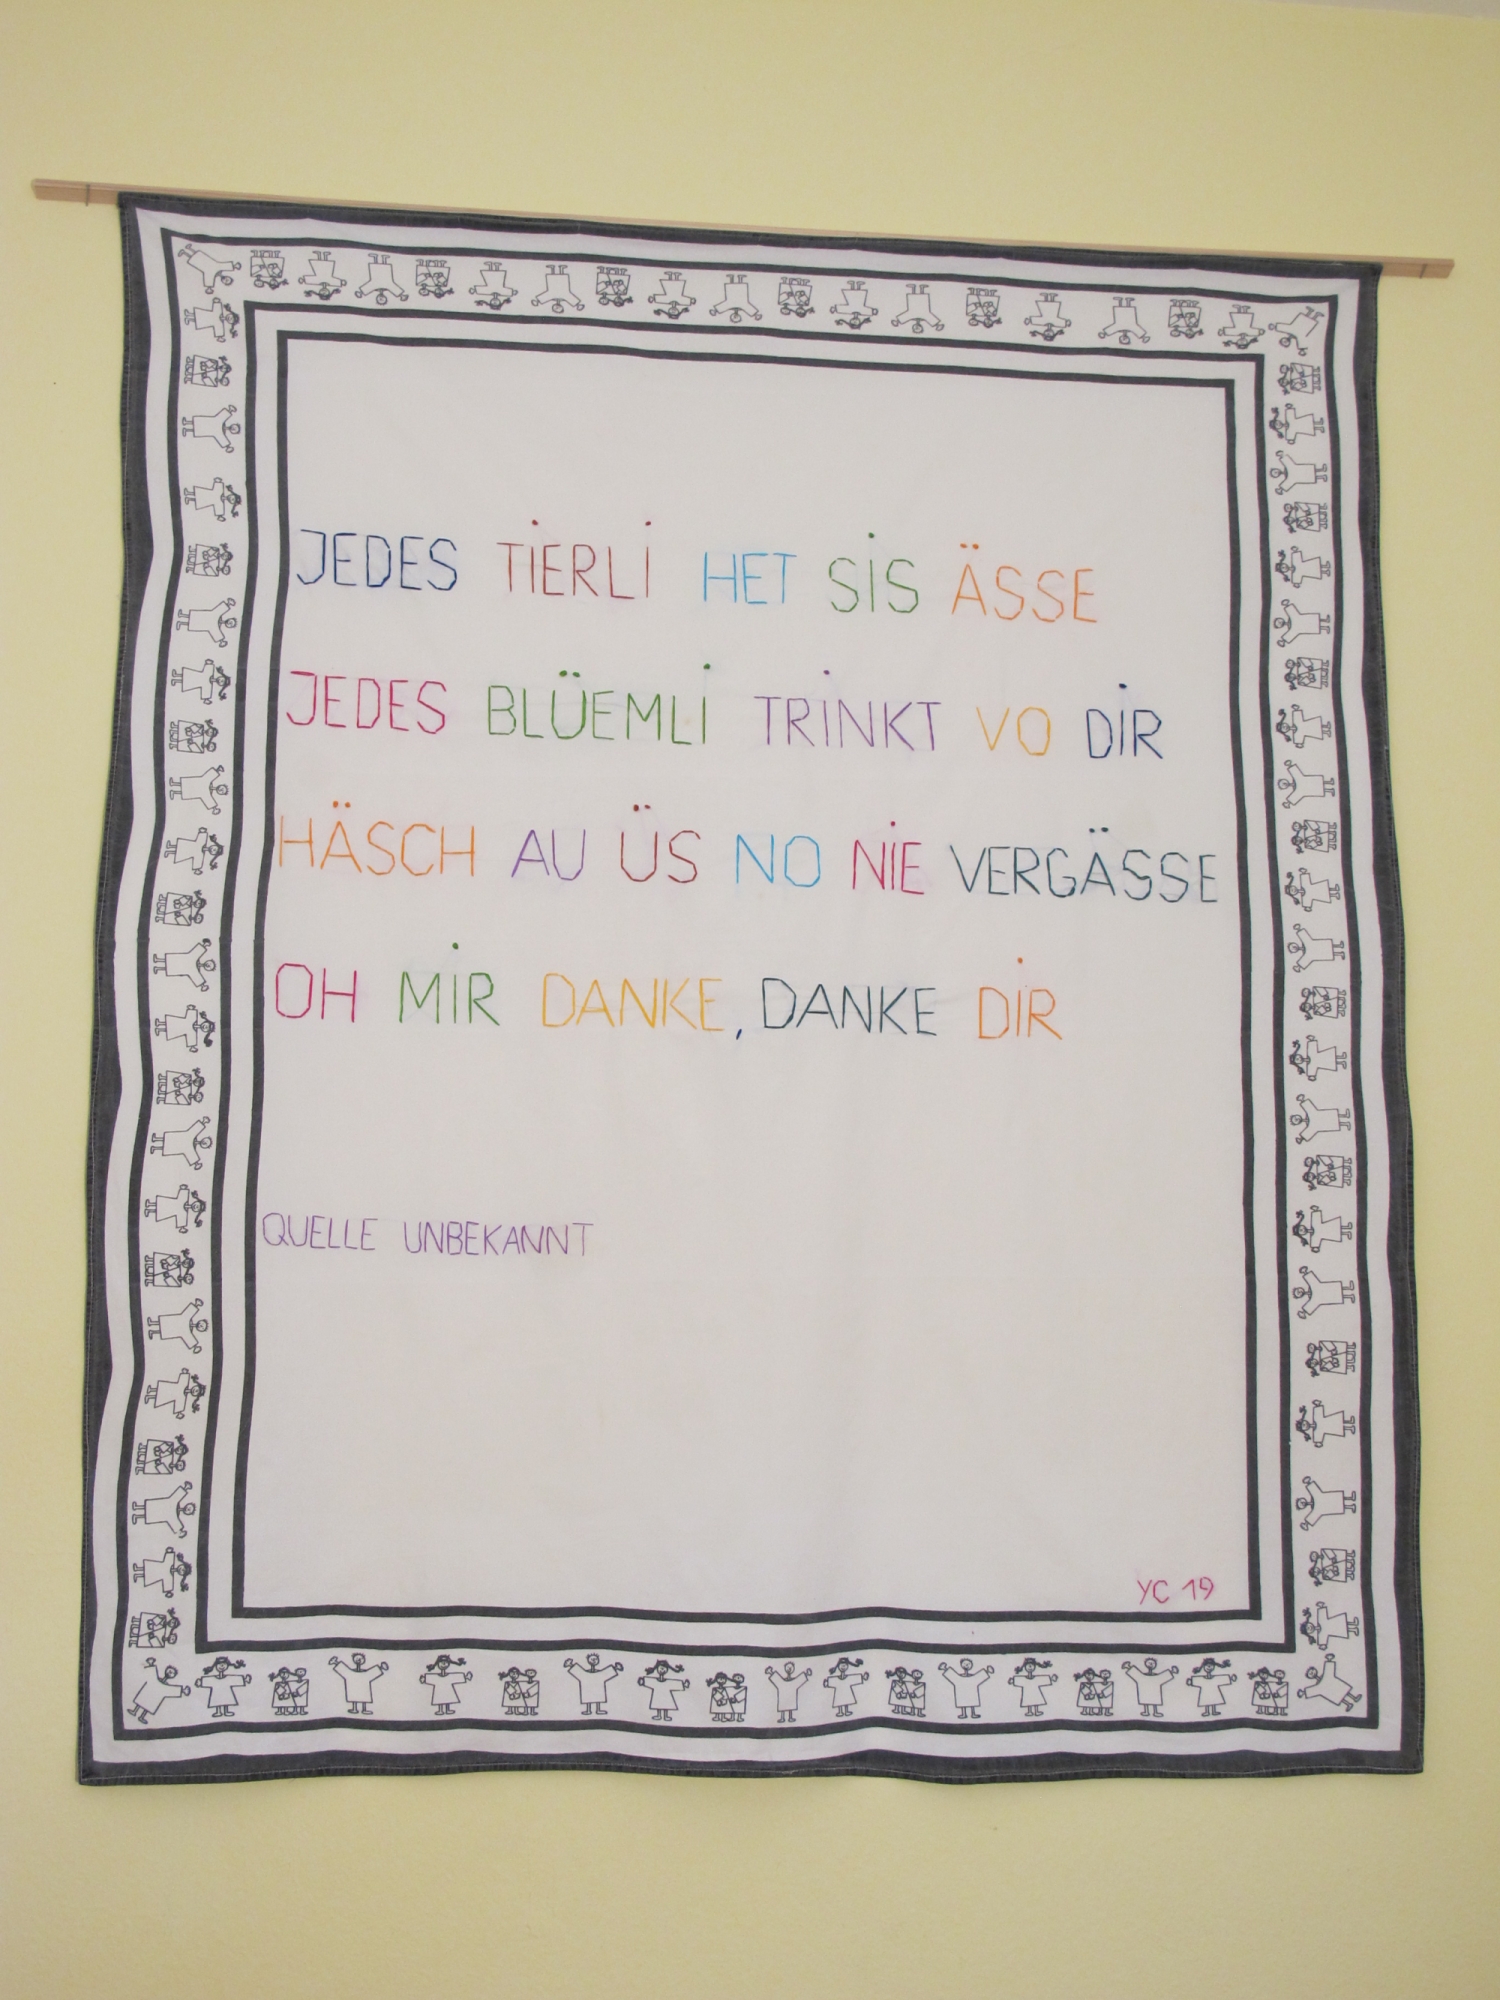 JEDES TIERLI HET SIS ÄSSE
JEDES BLÜEMLI TRINKT VO DIR
HÄSCH AU ÜS NO NIE VERGÄSSE
OH MIR DANKE, DANKE DIR
QUELLE UNBEKANNT
YC 19